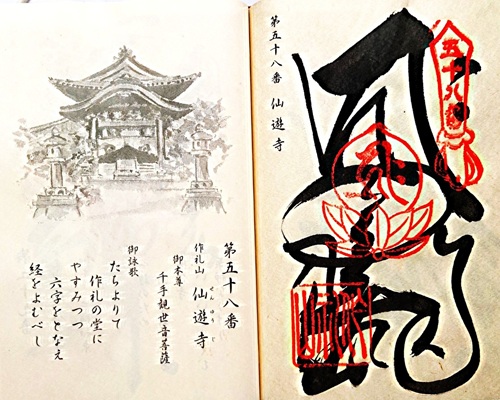 第五十八番 仙遊寺
五十八番
第五十八番
作礼山 仙遊寺
せんゆうじ
御本尊
千手観世音菩薩
御詠歌
たちよりて
作礼の堂に
やすみつつ
六字をとなえ
経をよむべし